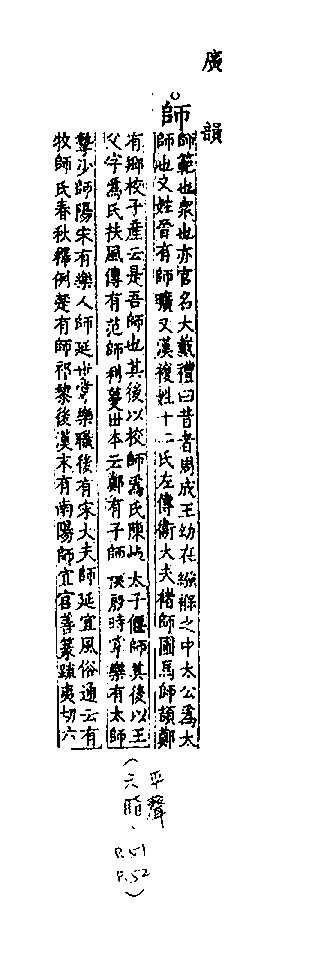 廣韻
師
師範也眾也亦官名大戴禮曰昔者周成王幼在襁褓之中太公為大
師也又姓晉有師曠又漢複姓十二氏左傳衛大夫褚師圃馬師頡鄭
有鄉校子產云是吾師也其後以校師為氏陳 太子偃師其後以王
父字為氏扶風傳有范師利蔓世本云鄭有子師僕殷時掌樂有太師
摯少師陽宋有樂人師延世掌樂職後有宋大夫師延宜風俗通云有
牧師氏春秋釋例楚有師祁黎後漢末有南陽師宜官善篆疏夷切六
平聲
(六脂、
P.51
P.52)